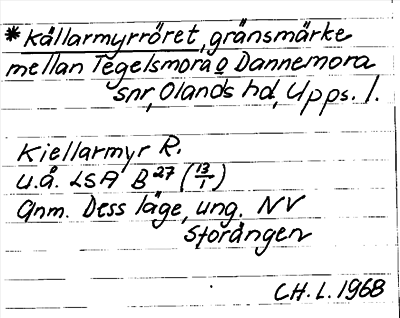 *Källarmyrröret, gränsmärke
mellan Tegelsmora o Dannemora
snr, Olands hd, Upps. l.
Kiellarmyr R.
u.å. LSA B27 (13/1)
Anm. Dess läge, ung. NV
Storängen
CH. L. 1968